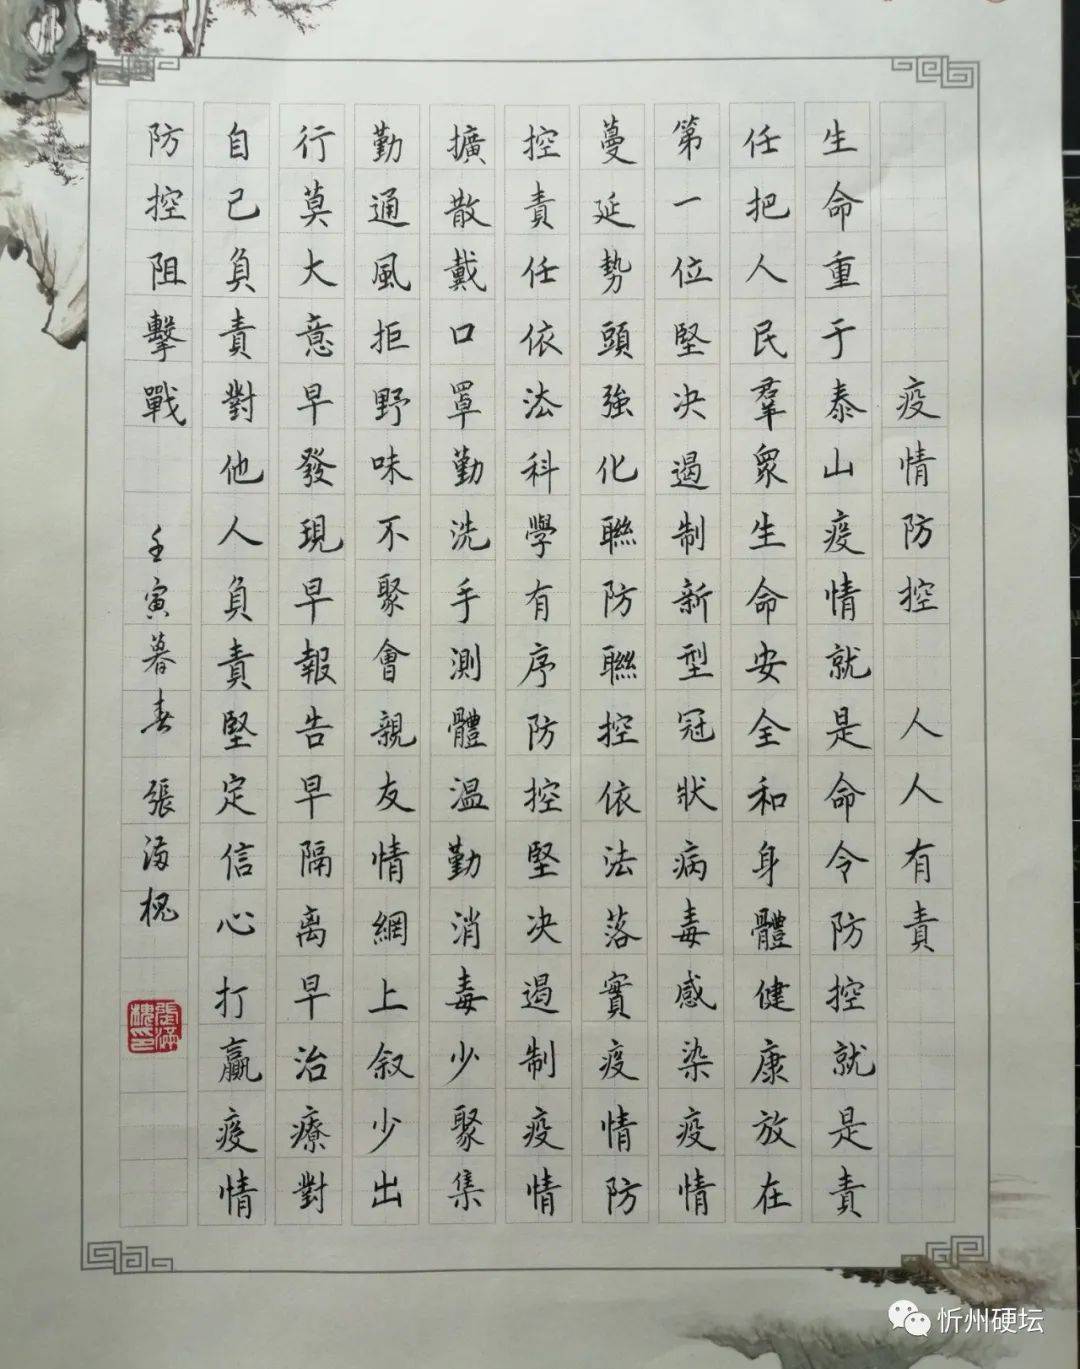 疫情防控 人人有責
生命重于泰山疫情就是命令防控就是責
任把人民羣眾生命安全和身體健康放在
第一位堅决遏制新型冠狀病毒感染疫情
蔓延勢頭強化聯防聯控依法落實疫情防
控責任依法科學有序防控堅决遏制疫情
擴散戴口罩勤洗手測體温勤消毒少聚集
勤通風拒野味不聚會親友情網上叙少出
行莫大意早發現早報告早隔离早治療對
自己負責對他人負責堅定信心打贏疫情
防控阻擊戰 壬寅暮春 張滿槐
張滿槐印
忻州硬坛